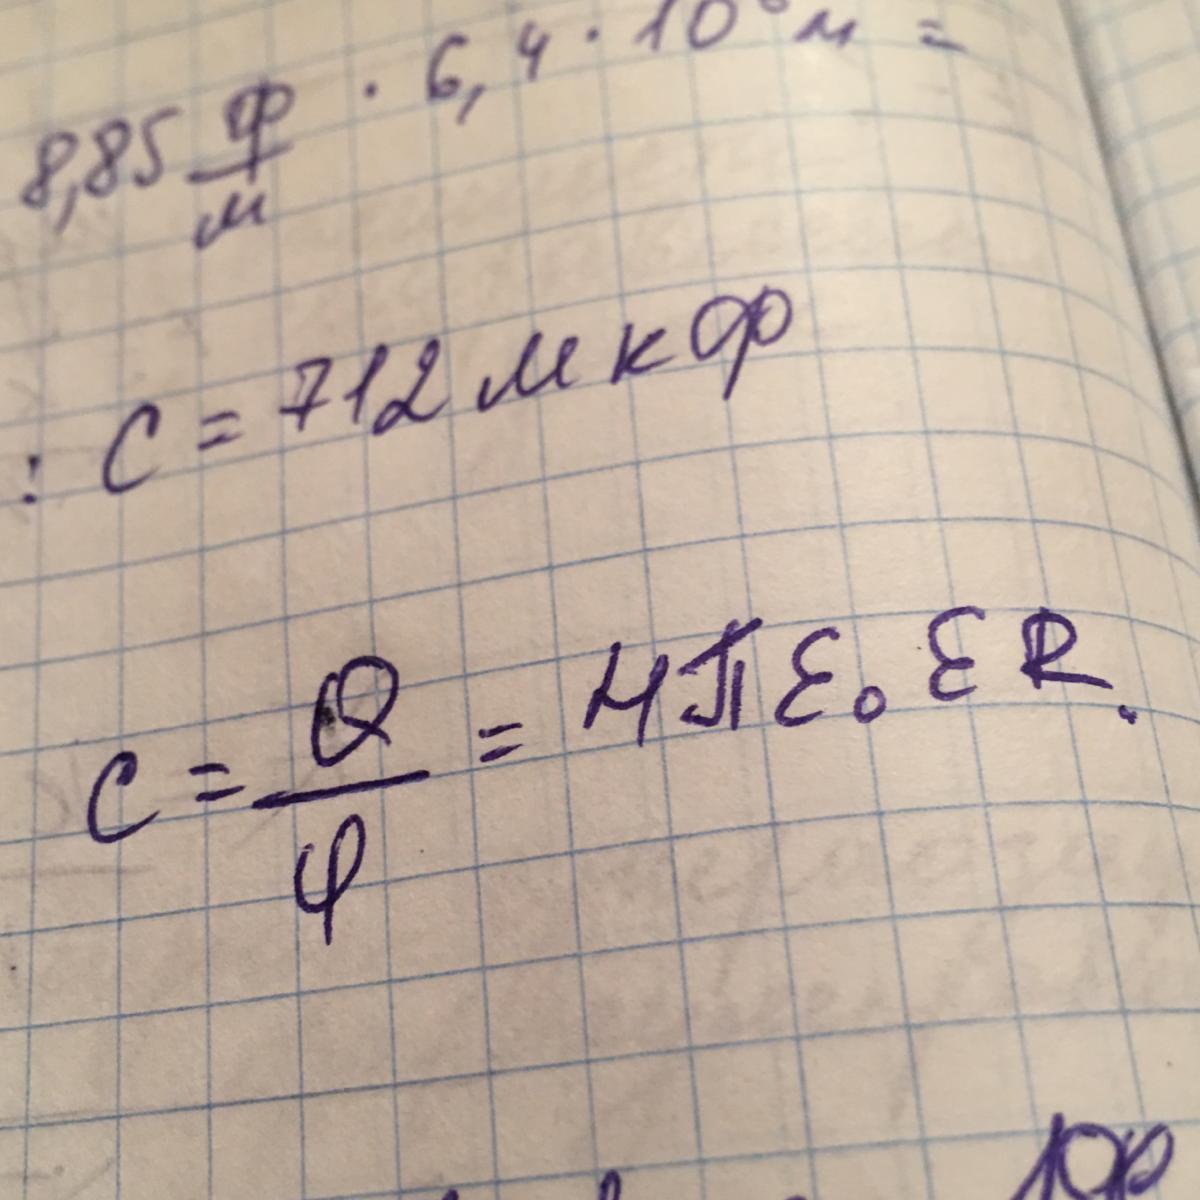 8,85 Ф/м · 6,4 · 10⁶ м =
: C = 712 мкФ
C = Q/φ = 4πε₀εR.